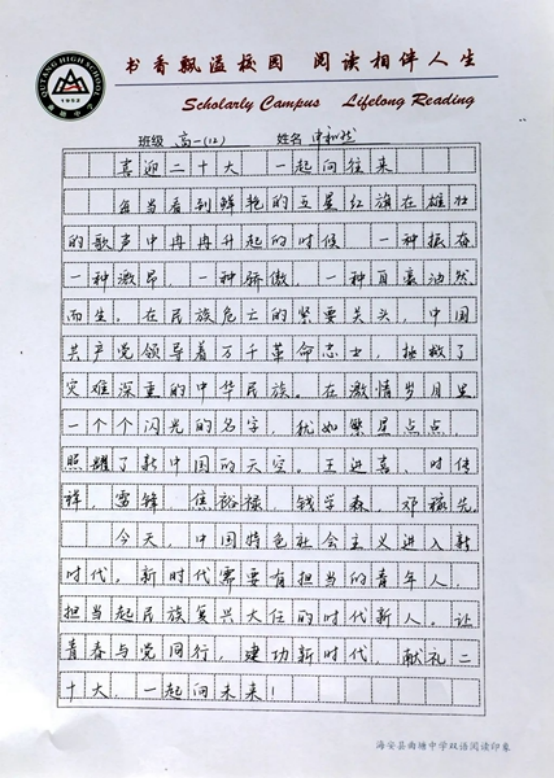 QUTANG HIGH SCHOOL
1952
曲塘中学
书香飘溢校园 阅读相伴人生
Scholarly Campus Lifelong Reading
班级 高一(12) 姓名
喜迎二十大 一起向往来
每当看到鲜艳的五星红旗在雄壮
的歌声中冉冉升起的时候 一种振奋
一种激昂，一种骄傲，一种自豪油然
而生。在民族危亡的紧要关头，中国
共产党领导着万千革命志士，拯救了
灾难深重的中华民族。在激情岁月里
一个个闪光的名字，犹如繁星点点，
照耀了新中国的天空。王进喜、时传
祥、雷锋、焦裕禄、钱学森、邓稼先。
今天，中国特色社会主义进入新
时代。新时代需要有担当的青年人，
担当起民族复兴大任的时代新人。让
青春与党同行，建功新时代，献礼二
十大，一起向未来！
海安县曲塘中学双语阅读印象